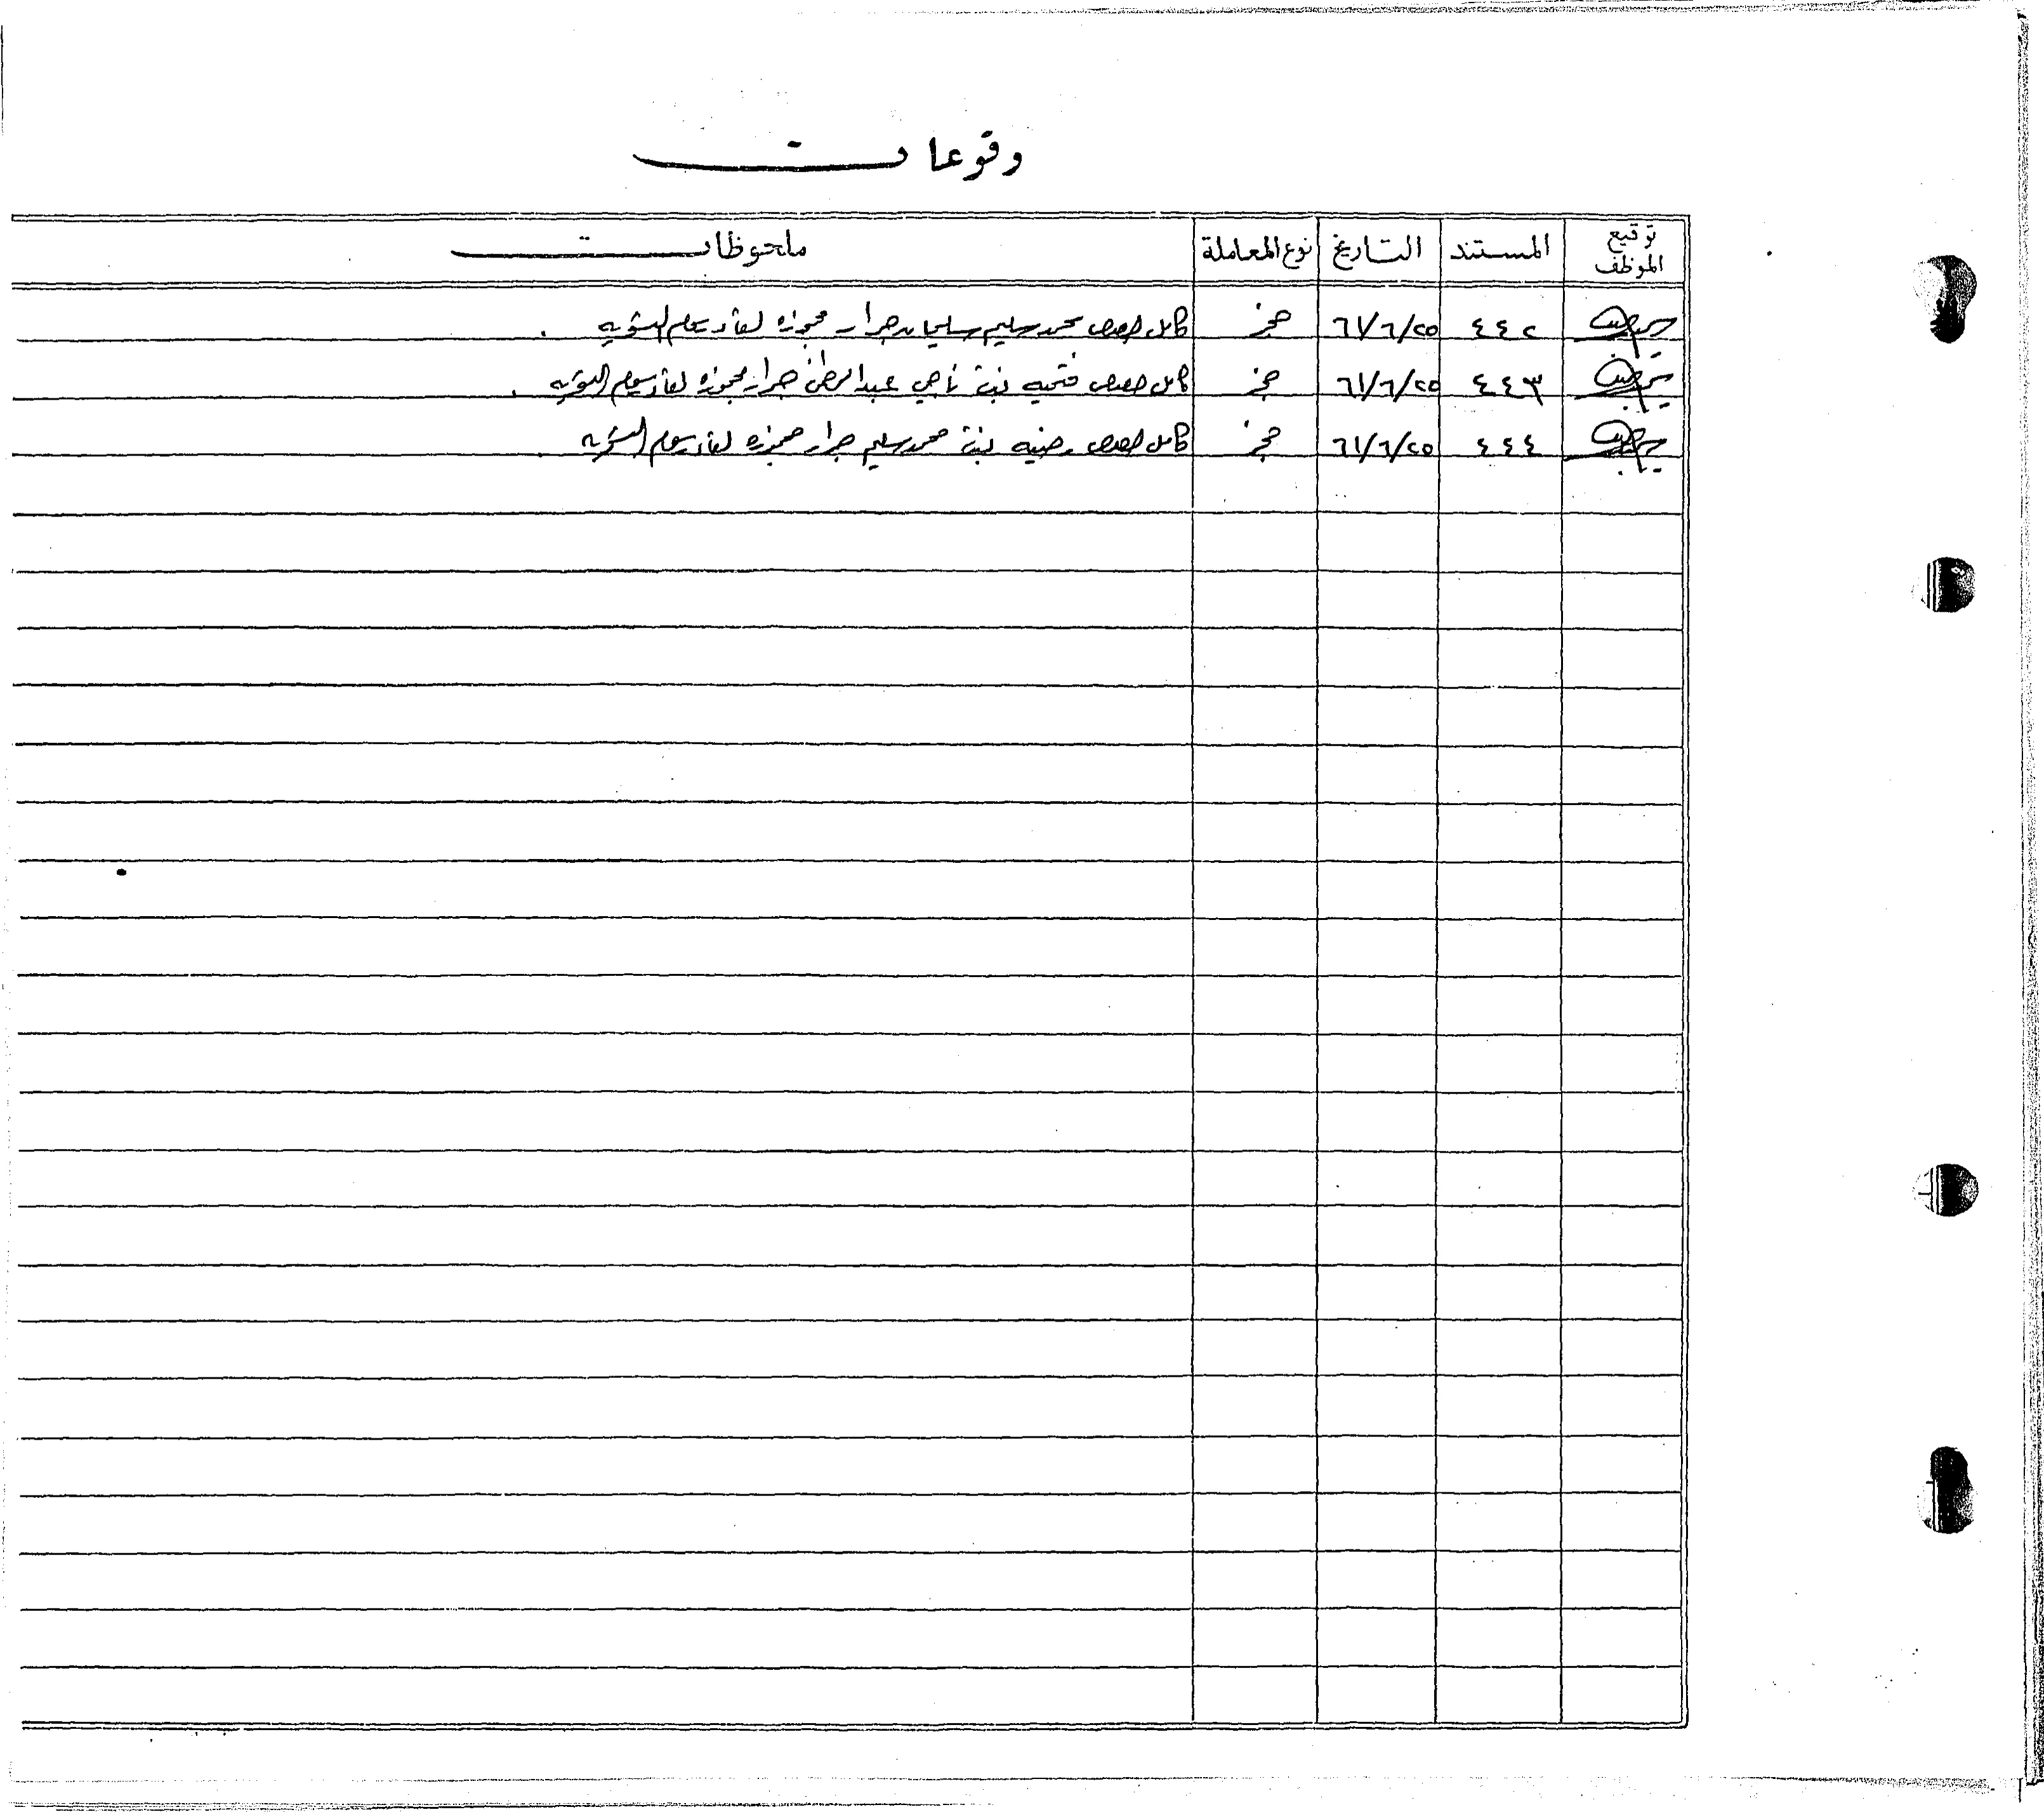 وقوعات
توقيع الموظف المستند التاريخ نوع المعاملة ملحوظات
٤٤٢ ٦١/٦/٢٥ حجز كامل حصص محمد سليم سليمان جرار محجوزه لقاء رسوم التسويه .
٤٤٣ ٦١/٦/٢٥ حجز كامل حصص فتحيه بنت ناجي عبد جرار محجوزه لقاء رسوم التسويه .
٤٤٤ ٦١/٦/٢٥ حجز كامل حصص رضيه بنت محمد سليم جرار محجوزه لقاء رسوم التسويه .